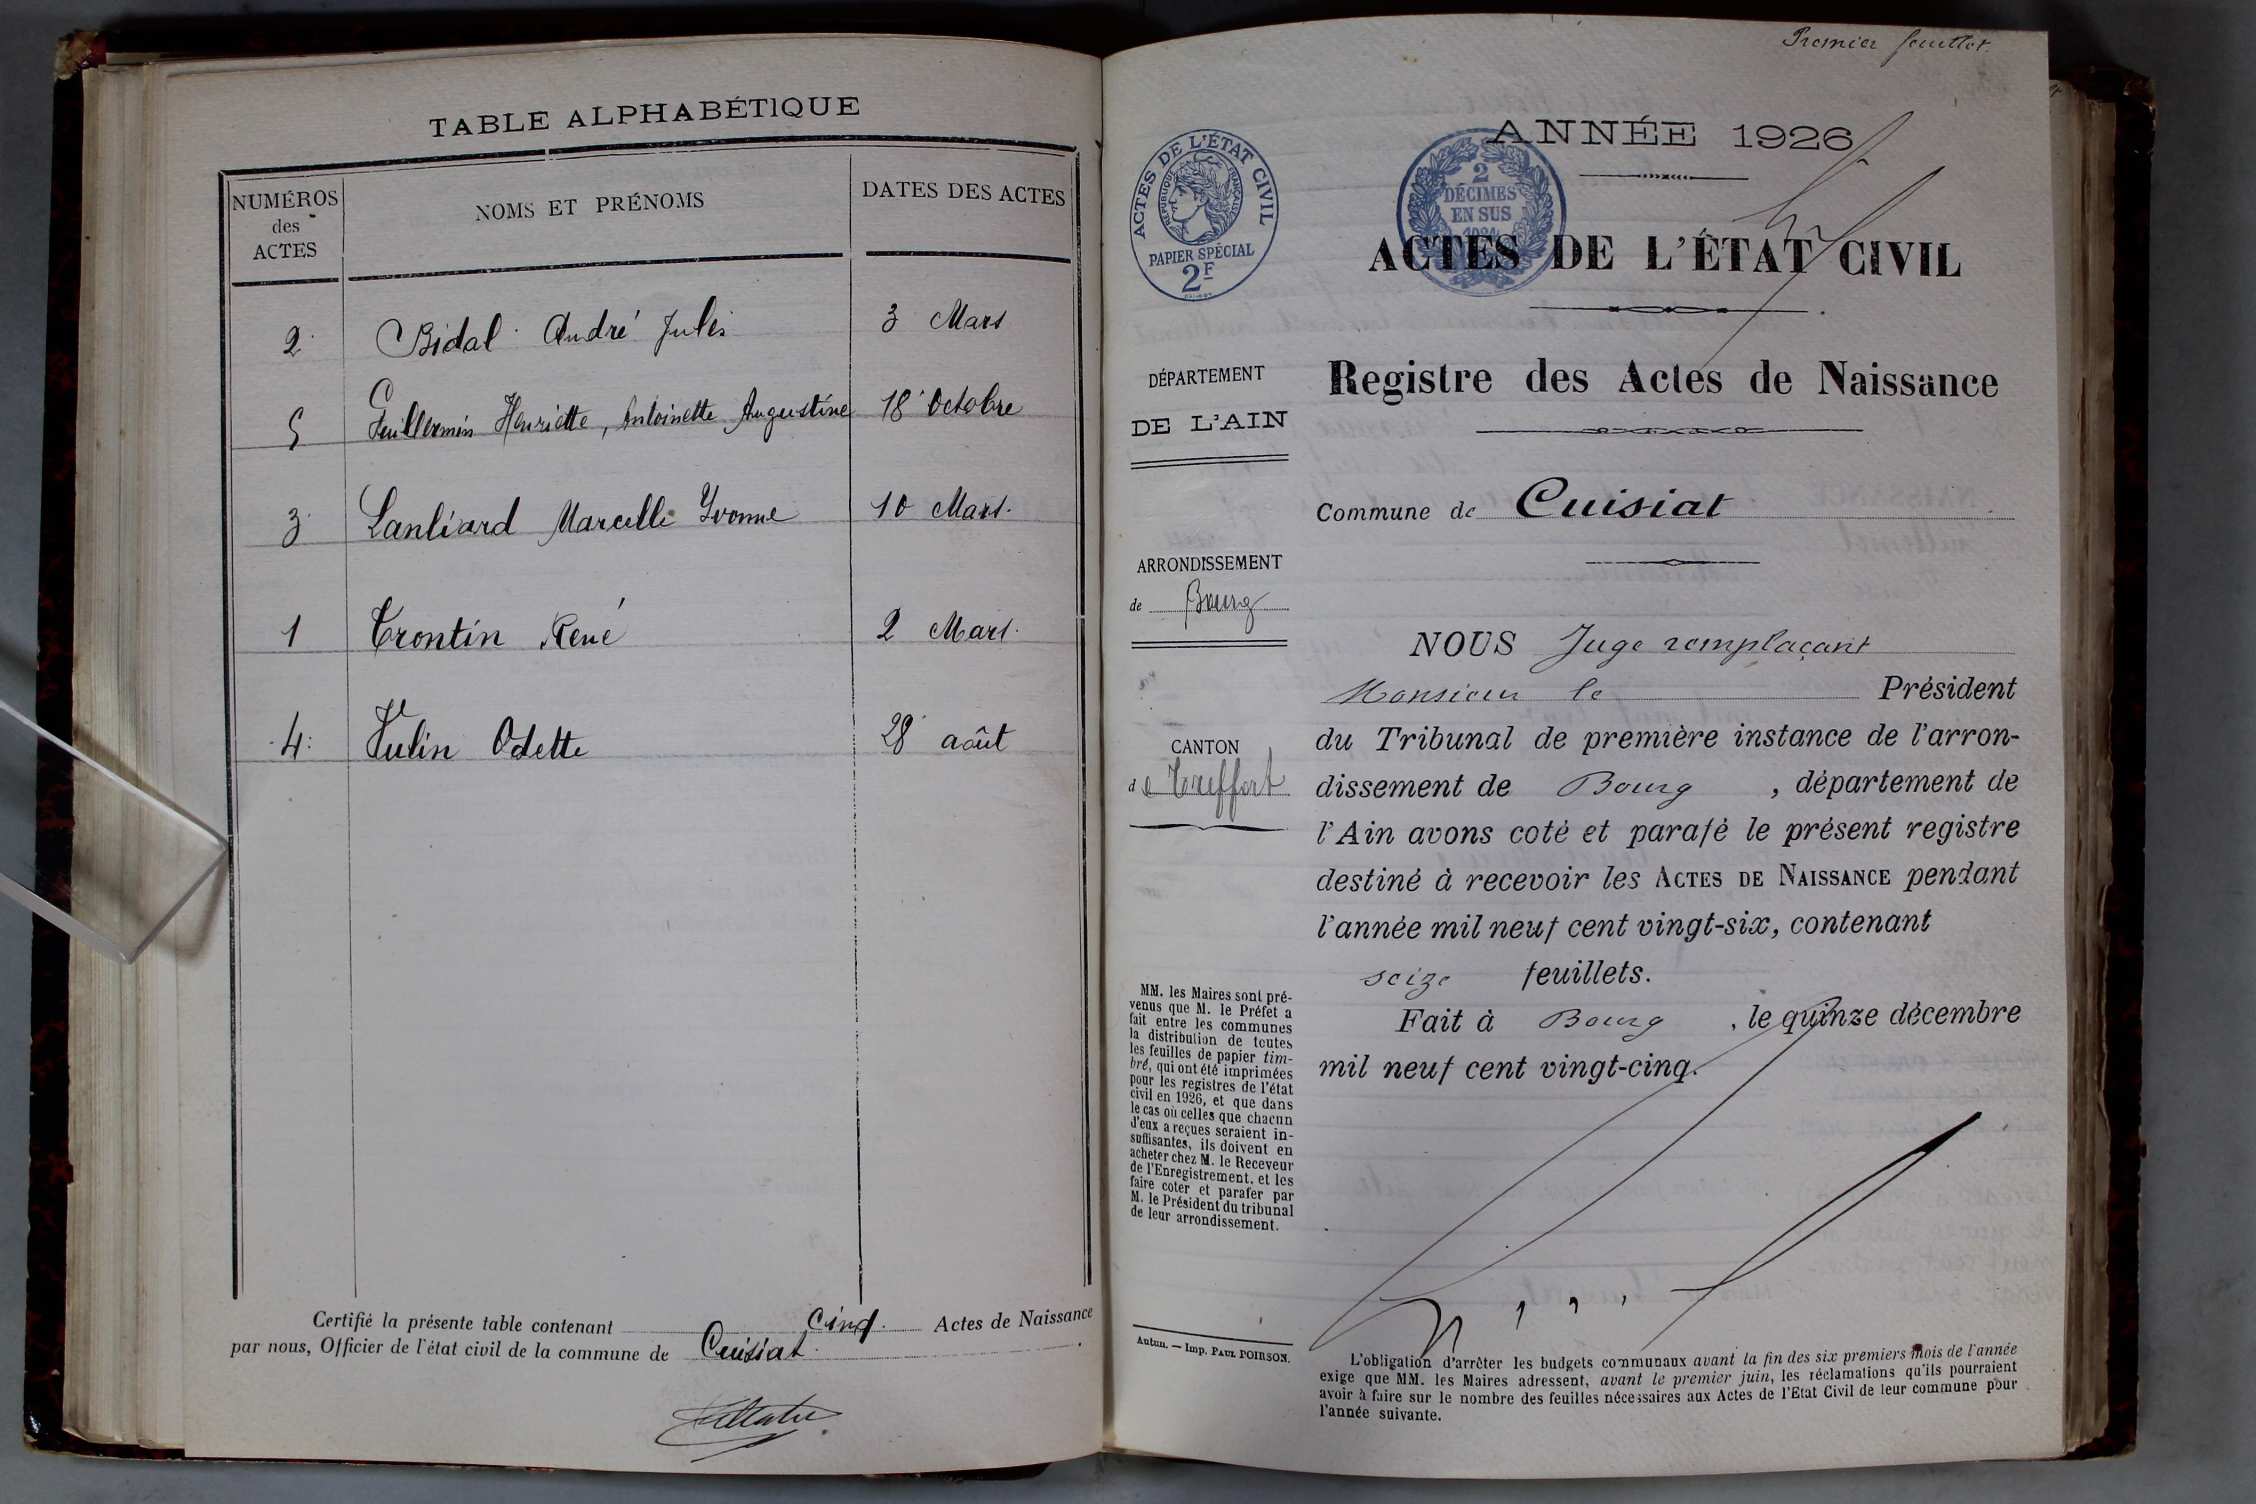 TABLE ALPHABÉTIQUE
NUMÉROS des ACTES
NOMS ET PRÉNOMS
DATES DES ACTES
2 Bidal André Jules 3 Mars
5 Guillermin Henriette, Antoinette Augustine 18 Octobre
3 Lanliard Marcelle Yvonne 10 Mars.
1 Trontin René 2 Mars.
4 Vulin Odette 28 août
Certifié la présente table contenant cinq. Actes de Naissance
par nous, Officier de l'état civil de la commune de Cuisiat.
Premier feuillet.
ANNÉE 1926
ACTES DE L'ÉTAT CIVIL
RÉPUBLIQUE FRANÇAISE
PAPIER SPÉCIAL
2F
2
DÉCIMES
EN SUS
ACTES DE L'ÉTAT CIVIL
Registre des Actes de Naissance
Commune de Cuisiat
DÉPARTEMENT
DE L'AIN
ARRONDISSEMENT
de Bourg
CANTON
de Treffort
MM. les Maires sont pré-
venus que M. le Préfet a
fait entre les communes
la distribution de toutes
les feuilles de papier tim-
bré, qui ont été imprimées
pour les registres de l'état
civil en 1926, et que dans
le cas où celles que chacun
d'eux a reçues seraient in-
suffisantes, ils doivent en
acheter chez M. le Receveur
de l'Enregistrement, et les
faire coter et parafer par
M. le Président du tribunal
de leur arrondissement.
Autun. — Imp. PAUL POIRSON.
NOUS Juge remplaçant
Monsieur le Président
du Tribunal de première instance de l'arron-
dissement de Bourg, département de
l'Ain avons coté et parafé le présent registre
destiné à recevoir les ACTES DE NAISSANCE pendant
l'année mil neuf cent vingt-six, contenant
seize feuillets.
Fait à Bourg, le quinze décembre
mil neuf cent vingt-cinq.
L'obligation d'arrêter les budgets communaux avant la fin des six premiers mois de l'année
exige que MM. les Maires adressent, avant le premier juin, les réclamations qu'ils pourraient
avoir à faire sur le nombre des feuilles nécessaires aux Actes de l'Etat Civil de leur commune pour
l'année suivante.